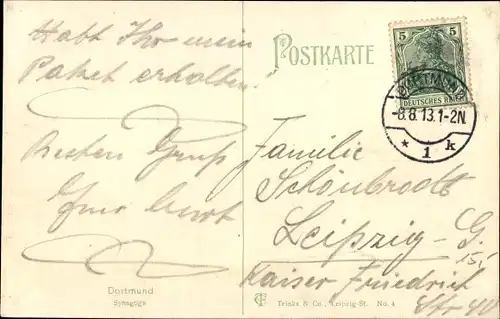 Habt Ihr mein
Paket erhalten
Besten Gruß
Euer
POSTKARTE
5 5
DEUTSCHES REICH
DORTMUND
-8.8.13.1-2N.
* 1 k
Familie
Schönbrodt
Leipzig-G.
Kaiser Friedrich
Str 40
Dortmund
Synagoge
Trinks & Co., Leipzig-St. No. 4